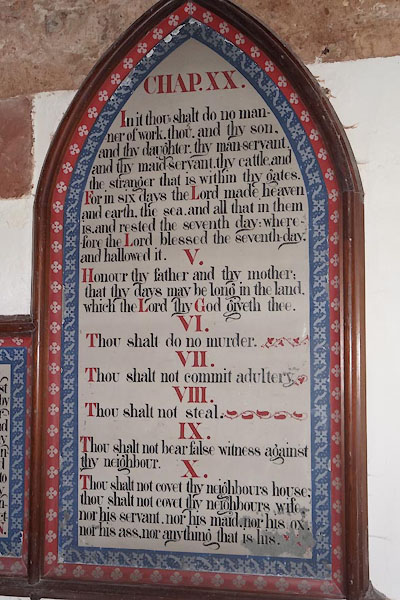 CHAP. XX.
In it thou shalt do no man-
ner of work, thou, and thy son,
and thy daughter, thy man-servant,
and thy maid-servant, thy cattle, and
the stranger that is within thy gates.
For in six days the Lord made heaven
and earth, the sea, and all that in them
is, and rested the seventh day: where-
fore the Lord blessed the seventh-day,
and hallowed it.
V.
Honour thy father and thy mother;
that thy days may be long in the land,
which the Lord thy God giveth thee.
VI.
Thou shalt do no murder.
VII.
Thou shalt not commit adultery.
VIII.
Thou shalt not steal.
IX.
Thou shalt not bear false witness against
thy neighbour.
X.
Thou shalt not covet thy neighbours house;
thou shalt not covet thy neighbours wife,
nor his servant, nor his maid, nor his ox,
nor his ass, nor anything that is his.